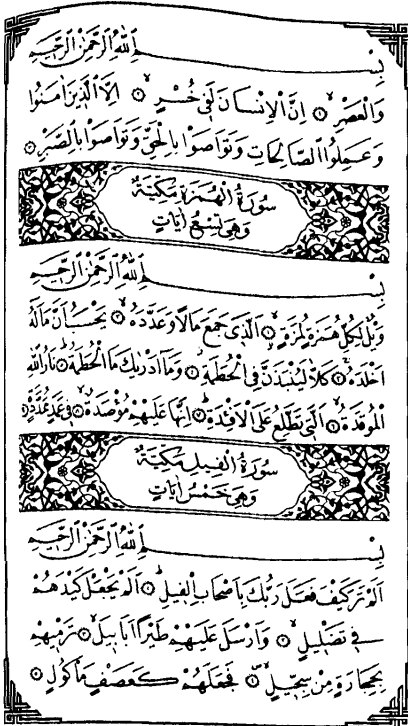 بِسْمِ اللّٰهِ الرَّحْمٰنِ الرَّحِيمِ
وَالْعَصْرِۙ ﴿١﴾ اِنَّ الْاِنْسَانَ لَفِي خُسْرٍۙ ﴿٢﴾ اِلَّا الَّذِينَ اٰمَنُوا
وَعَمِلُوا الصَّالِحَاتِ وَتَوَاصَوْا بِالْحَقِّ وَتَوَاصَوْا بِالصَّبْرِ ﴿٣﴾
سُورَةُ الْهُمَزَةِ مَكِّيَّةٌ
وَهِيَ تِسْعُ اٰيَاتٍ
بِسْمِ اللّٰهِ الرَّحْمٰنِ الرَّحِيمِ
وَيْلٌ لِكُلِّ هُمَزَةٍ لُمَزَةٍۙ ﴿١﴾ اَلَّذِي جَمَعَ مَالًا وَعَدَّدَهُۙ ﴿٢﴾ يَحْسَبُ اَنَّ مَالَهُٓ
اَخْلَدَهُۚ ﴿٣﴾ كَلَّا لَيُنْبَذَنَّ فِي الْحُطَمَةِۘ ﴿٤﴾ وَمَٓا اَدْرٰيكَ مَا الْحُطَمَةُۜ ﴿٥﴾ نَارُ اللّٰهِ
الْمُوقَدَةُۙ ﴿٦﴾ اَلَّتِي تَطَّلِعُ عَلَى الْاَفْـِٔدَةِۜ ﴿٧﴾ اِنَّهَا عَلَيْهِمْ مُؤْصَدَةٌۙ ﴿٨﴾ فِي عَمَدٍ مُمَدَّدَةٍ ﴿٩﴾
سُورَةُ الْفِيلِ مَكِّيَّةٌ
وَهِيَ خَمْسُ اٰيَاتٍ
بِسْمِ اللّٰهِ الرَّحْمٰنِ الرَّحِيمِ
اَلَمْ تَرَ كَيْفَ فَعَلَ رَبُّكَ بِاَصْحَابِ الْفِيلِۜ ﴿١﴾ اَلَمْ يَجْعَلْ كَيْدَهُمْ
فِي تَضْلِيلٍۙ ﴿٢﴾ وَاَرْسَلَ عَلَيْهِمْ طَيْرًا اَبَابِيلَۙ ﴿٣﴾ تَرْمِيهِمْ
بِحِجَارَةٍ مِنْ سِجِّيلٍۙ ﴿٤﴾ فَجَعَلَهُمْ كَعَصْفٍ مَأْكُولٍ ﴿٥﴾